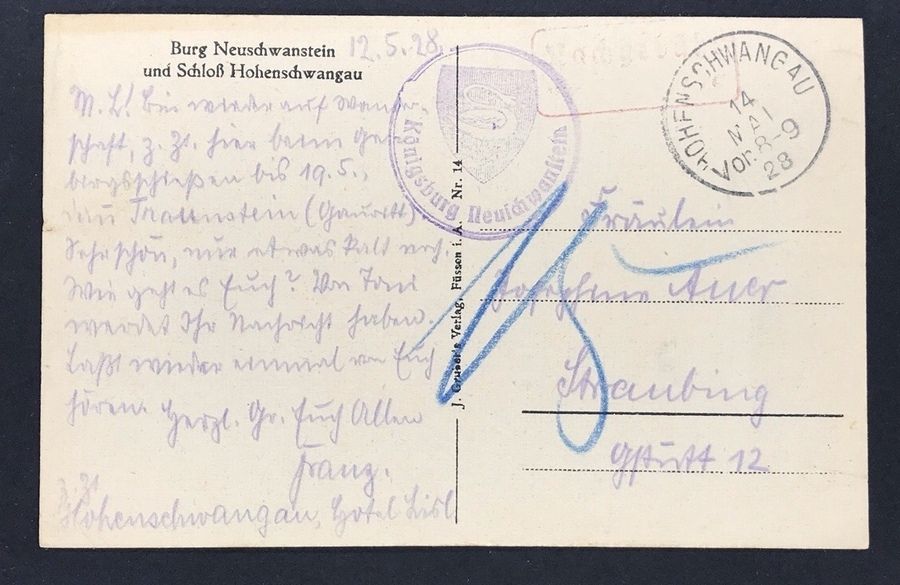 Burg Neuschwanstein
und Schloß Hohenschwangau
12.5.28.
M. L.! Bin wieder auf Wander-
schaft, z. Zt. hier beim Ge-
birgsschießen bis 19.5.,
dann Traunstein (Gauritt).
Sehr schön, nur etwas kalt noch.
Wie geht es Euch? Von Toni
werdet Ihr Nachricht haben.
Laßt wieder einmal von Euch
hören. Herzl. Gr. Euch Allen
Franz.
z. Zt.
Hohenschwangau, Hotel Lisl
J. Gruber's Verlag, Füssen i. A. Nr. 14
Königsburg Neuschwanstein
HOHENSCHWANGAU
14
MAI
Vor. 8-9
28
Fräulein
Josephine Auer
Straubing
Gstütt 12